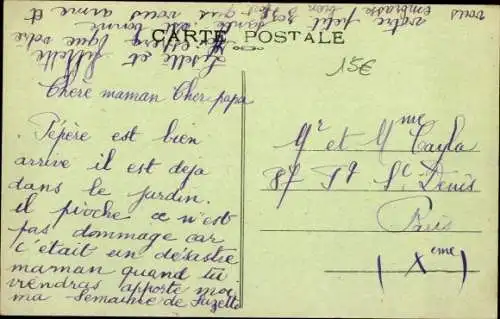 CARTE POSTALE
15€
Chere maman Cher papa
Pépère est bien
arrive il est deja
dans le jardin.
il pioche ce n'est
pas dommage car
c'était un désastre
maman quand tu
viendras apporte moi
ma semainie de Suzette
Lisette et
que votre
votre petit
vous embrasse
que vous aime et
Mr et Mme Cayla
87 Fg St Denis
Paris
(Xeme)